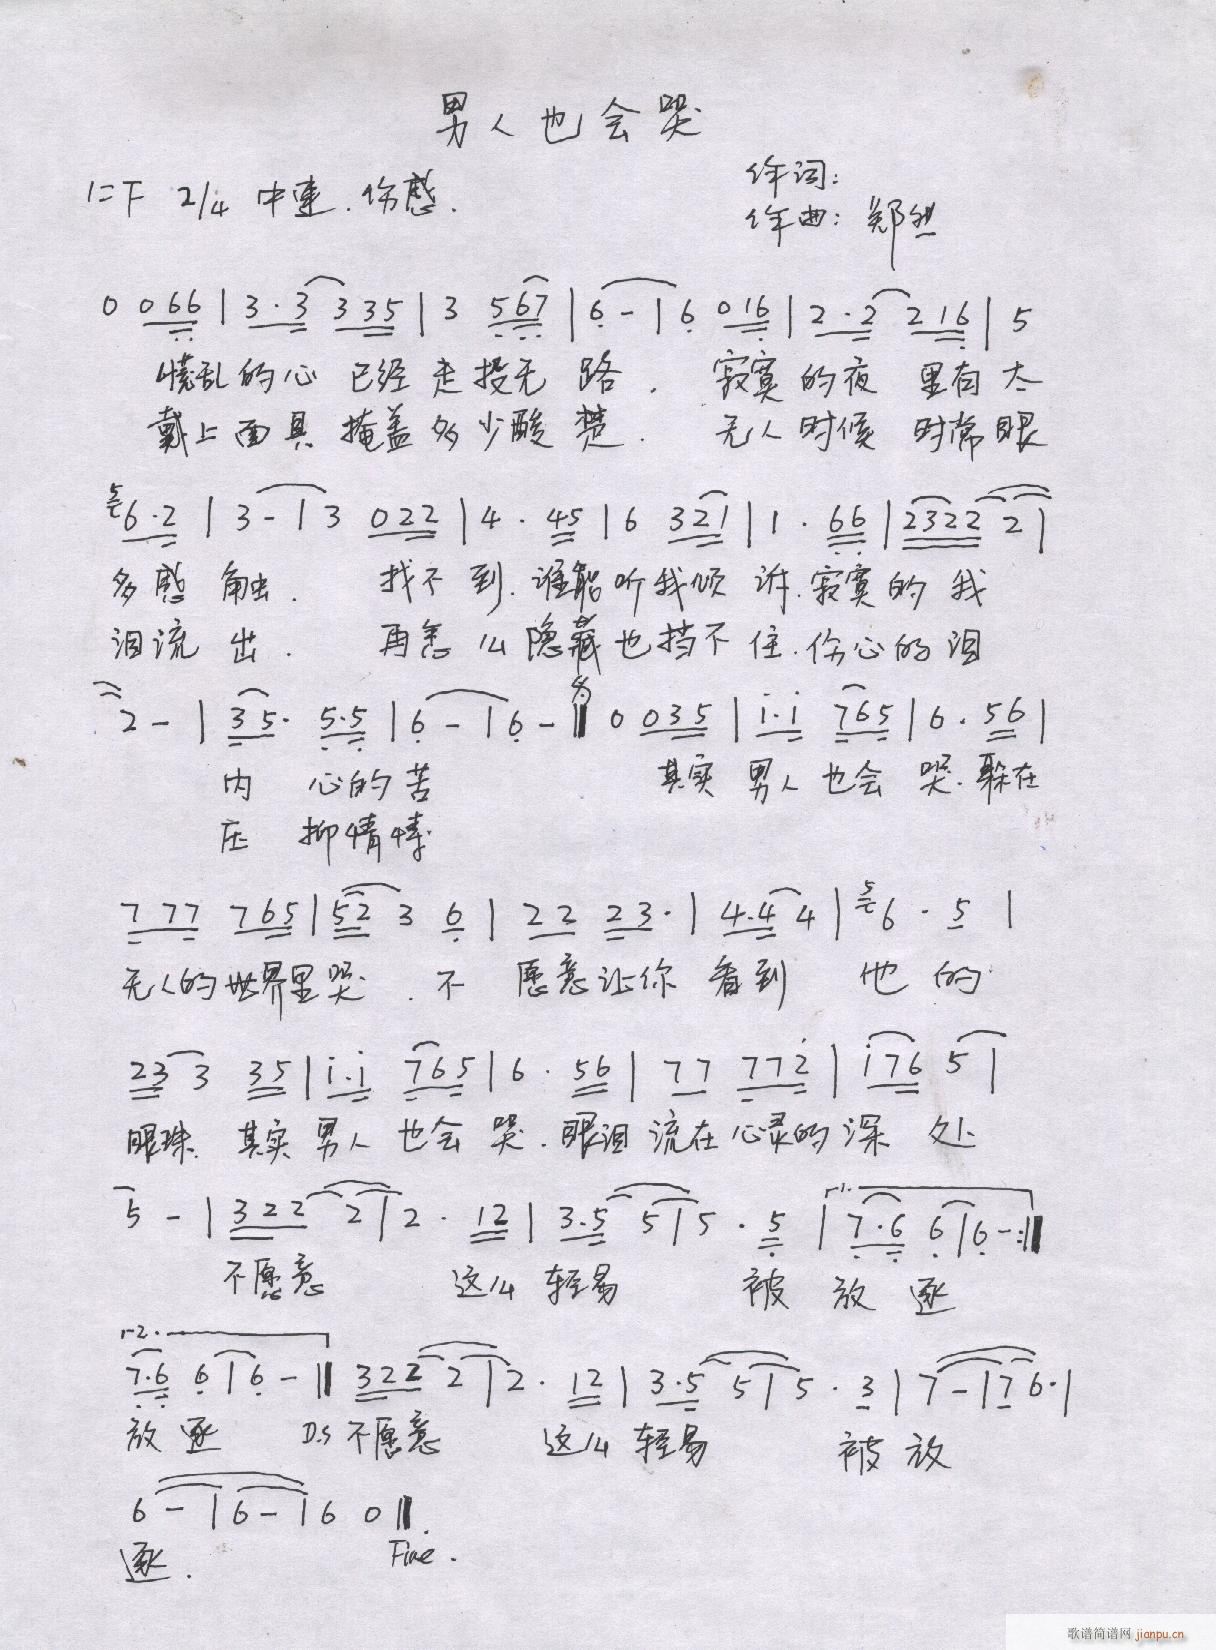 男人也会哭
1=F 2/4 中速.伤感.
作词:
作曲: 郑然
0 0 6 6 | 3 · 3 3 3 5 | 3 5 6 7 | 6 - | 6 0 1 6 | 2 · 2 2 1 6 | 5
慌乱的心 已经走投无路. 寂寞的夜 里有太
戴上面具 掩盖多少酸楚. 无人时候 时常眼
5 6·2 | 3 - | 3 0 2 2 | 4 · 4 5 | 6 3 2 1 | 1 · 6 6 | 2 3 2 2 2 |
多感触. 找不到.谁能听我倾诉.寂寞的我
泪流出. 再怎么隐藏也挡不住.伤心的泪
2 - | 3 5· 5·5 | 6 - | 6 - || 0 0 3 5 | i·i 7 6 5 | 6 · 5 6 |
内心的苦 其实男人也会哭.躲在
压抑情愫
7 7 7 7 6 5 | 5 2 3 6 | 2 2 2 3· | 4·4 4 | 5 6 · 5 |
无人的世界里哭. 不愿意让你看到 他的
2 3 3 3 5 | i·i 7 6 5 | 6 · 5 6 | 7 7 7 7 2 | i 7 6 5 |
眼珠. 其实男人也会哭.眼泪流在心灵的深处
5 - | 3 2 2 2 | 2 · 1 2 | 3·5 5 | 5 · 5 | 1. 7·6 6 | 6 - :||
不愿意 这么轻易 被放逐
2. 7·6 6 | 6 - || 3 2 2 2 | 2 · 1 2 | 3·5 5 | 5 · 3 | 7 - | 7 6· |
放逐 D.S 不愿意 这么轻易 被放
6 - | 6 - | 6 0 ||
逐. Fine.
歌谱简谱网 jianpu.cn